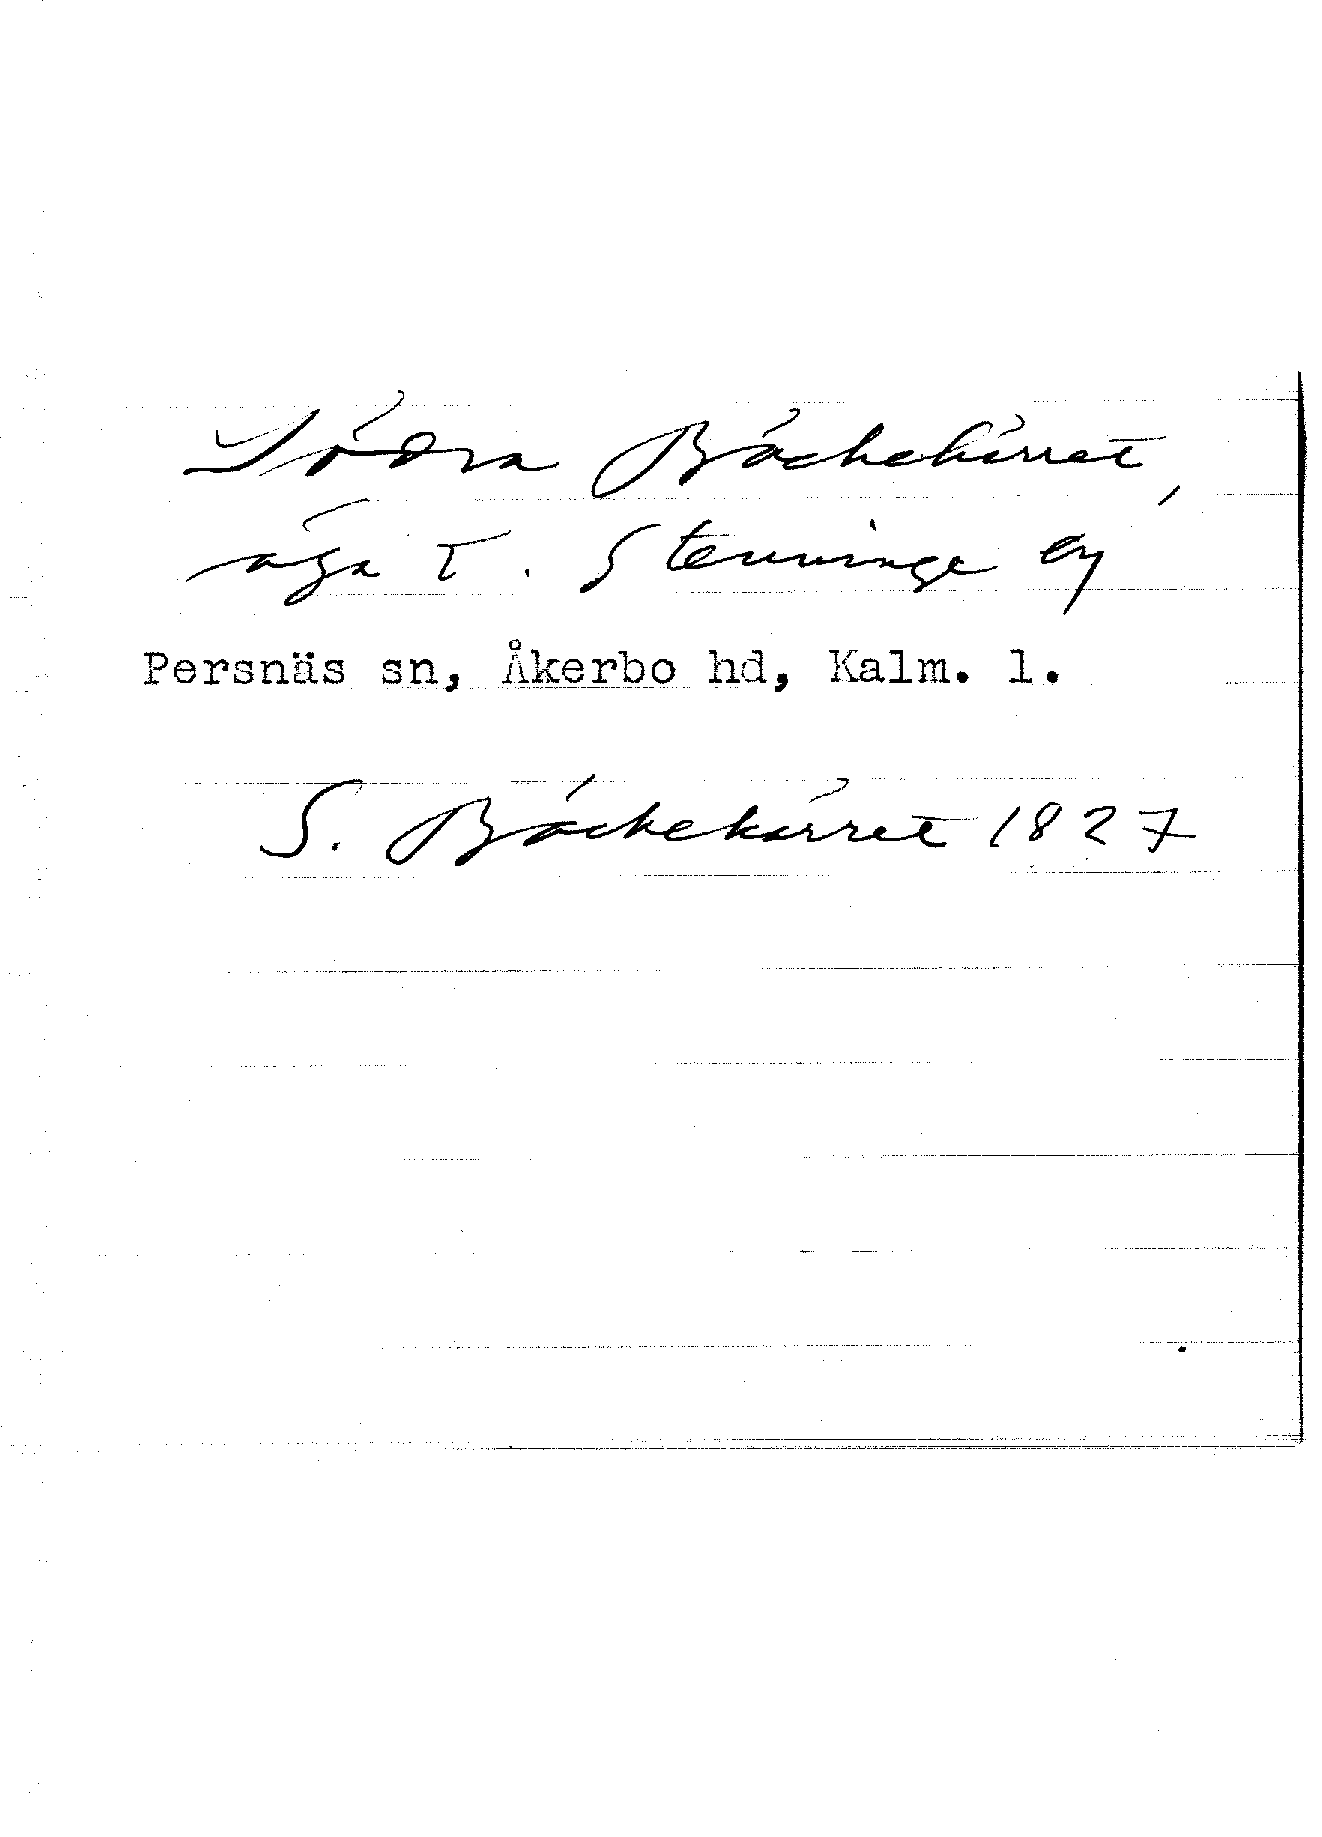 Södra Bäckekärret,
äga t. Stenninge by
Persnäs sn, Åkerbo hd, Kalm. l.
S. Bäckekärret 1827